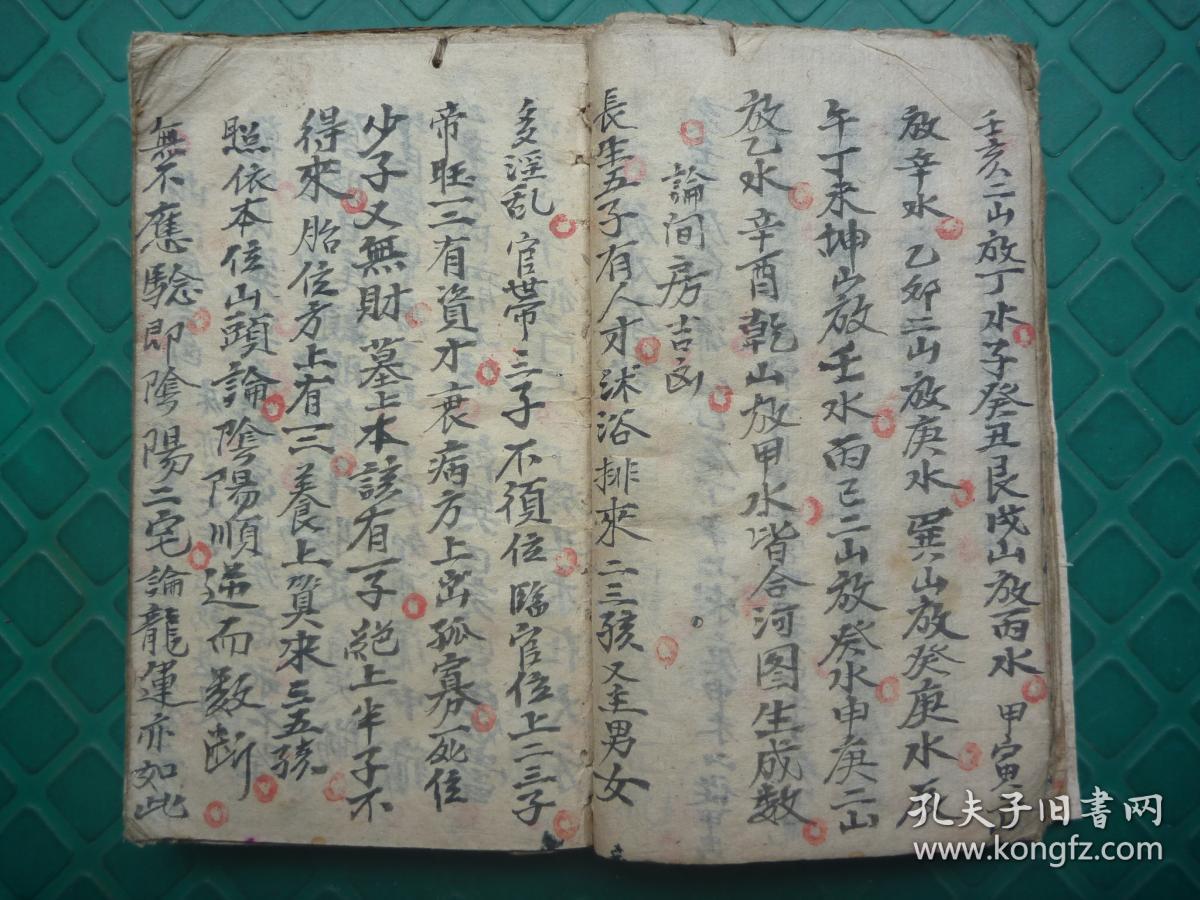 壬亥二山放丁水子癸丑艮戌山放丙水甲寅
放辛水乙夘二山放庚水巽山放癸庚水
午丁未坤山放壬水丙巳二山放癸水申庚二山
放乙水辛酉乾山放甲水皆合河图生成数
論间房吉凶
長生五子有人才沭浴排來二三孩又主男女
多淫乱官帶三子不須位臨官位上二三子
帝旺一二有資才衰病方上出孤寡死位
少子又無財墓上本該有一子絕上半子不
得來胎位方上有一三養上算來三五孩
照依本位山頭論陰陽順逆而数断
無不應驗即陰陽二宅論龍運亦如此
孔夫子旧书网
www.kongfz.com